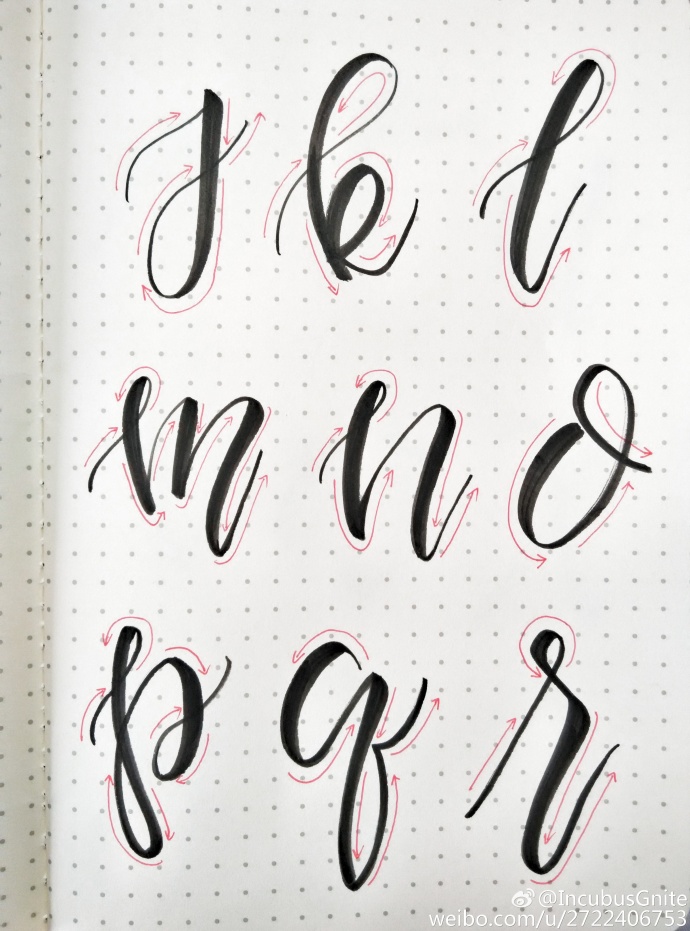 j k l
m n o
p q r
@IncubusGnite
weibo.com/u/2722406753